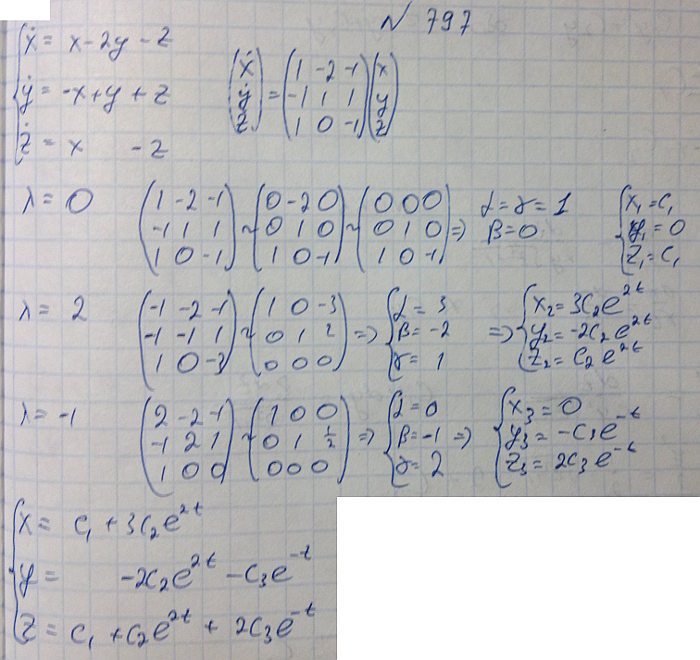 N 797
{ ẋ = x - 2y - z
ẏ = -x + y + z
ż = x - z
(ẋ ẏ ż) = (1 -2 -1; -1 1 1; 1 0 -1)(x y z)
λ = 0 (1 -2 -1; -1 1 1; 1 0 -1) ~ (0 -2 0; 0 1 0; 1 0 -1) ~ (0 0 0; 0 1 0; 1 0 -1) => α = γ = 1 β = 0 { x₁ = C₁ y₁ = 0 z₁ = C₁
λ = 2 (-1 -2 -1; -1 -1 1; 1 0 -3) ~ (1 0 -3; 0 1 2; 0 0 0) => { α = 3 β = -2 γ = 1 => { x₂ = 3C₂e^{2t} y₂ = -2C₂e^{2t} z₂ = C₂e^{2t}
λ = -1 (2 -2 -1; -1 2 1; 1 0 0) ~ (1 0 0; 0 1 1/2; 0 0 0) => { α = 0 β = -1 γ = 2 => { x₃ = 0 y₃ = -C₃e^{-t} z₃ = 2C₃e^{-t}
{ x = C₁ + 3C₂e^{2t}
y = -2C₂e^{2t} - C₃e^{-t}
z = C₁ + C₂e^{2t} + 2C₃e^{-t}